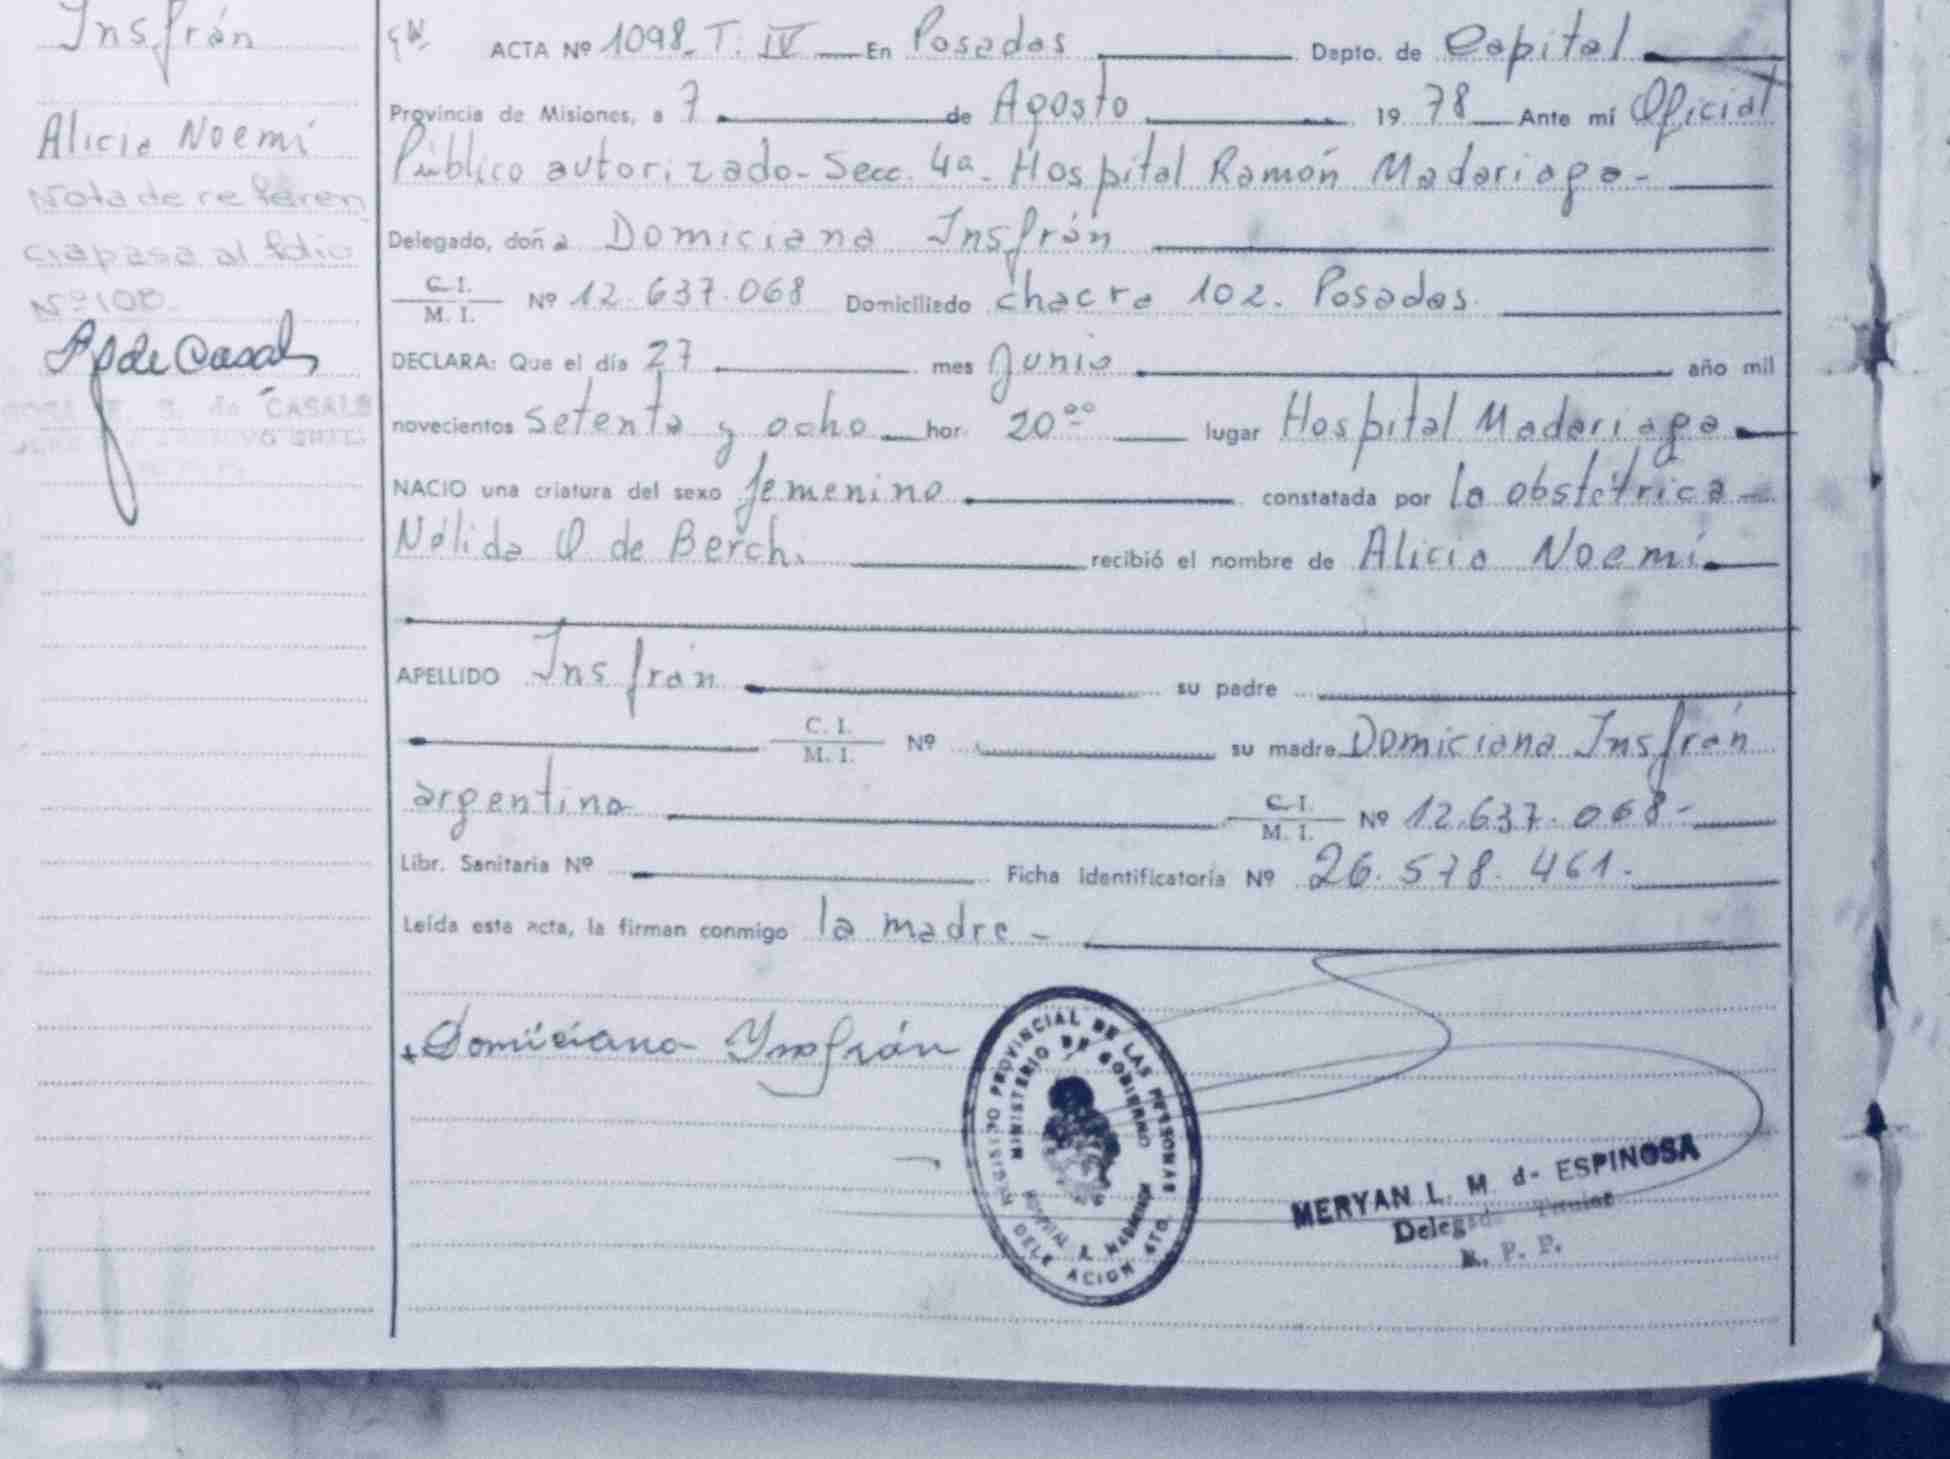 Insfrán
Alicia Noemí
Nota de referen
cia pasa al folio
Nº 108-
de Casals
de CASALS
ACTA Nº 1098 T. IV En Posadas Dpto. de Capital
Provincia de Misiones, a 7 de Agosto 1978 Ante mí Oficial
Público autorizado- Secc. 4a- Hospital Ramón Madariaga-
Delegado, doña Domiciana Insfrán
C. I. / M. I. Nº 12.637.068 Domiciliado chacra 102. Posadas.
DECLARA: Que el día 27 mes Junio año mil
novecientos setenta y ocho hor. 20 00 lugar Hospital Madariaga
NACIO una criatura del sexo femenino constatada por la obstétrica
Nélida O de Berch. recibió el nombre de Alicia Noemí
APELLIDO Insfrán su padre
C. I. / M. I. Nº su madre Domiciana Insfrán
argentina C. I. / M. I. Nº 12.637.068-
Libr. Sanitaria Nº Ficha Identificatoria Nº 26.578.461-
Leída esta acta, la firman conmigo la madre -
Domiciana Ynsfrán
REGISTRO PROVINCIAL DE LAS PERSONAS
MINISTERIO DE GOBIERNO
HOSPITAL R. MADARIAGA
DELEGACION 4TO.
MERYAN L. M. de ESPINOSA
Delegada Titular
R. P. P.